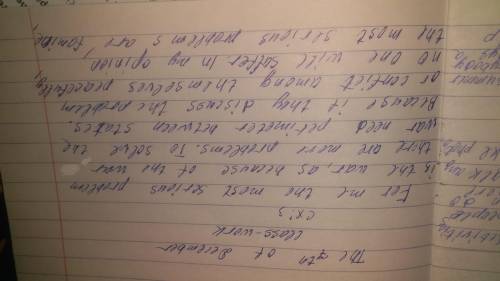 The 9th of december
class-work
ex: 3
For me the most serious problem
is the war, as because of the war
there are more problems. To solve the
war need perimeter between states
Because if they discuss the problem
or conflict among themselves peacefully,
no one will suffer In my opinion,
the most serious problems are famine